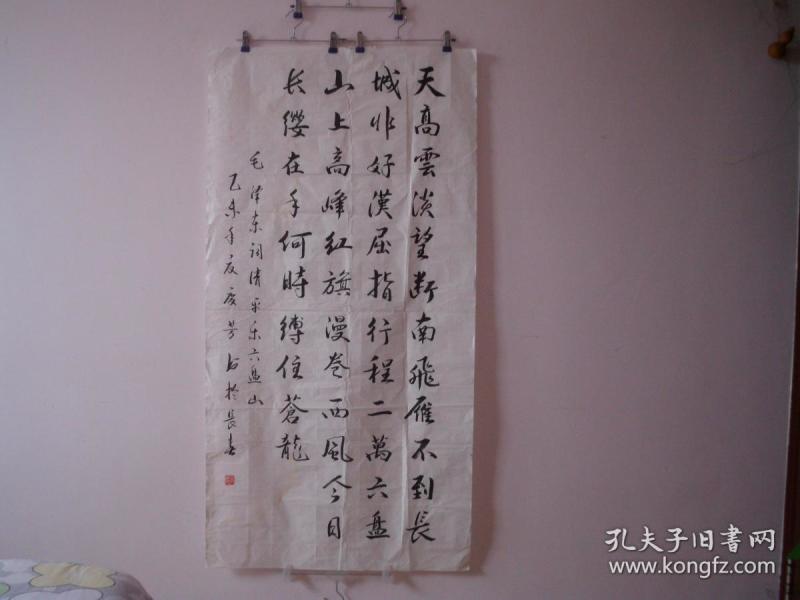 天高雲淡望斷南飛雁不到長
城非好漢屈指行程二萬六盘
山上高峰红旗漫卷西風今日
长缨在手何時缚住蒼龍
毛泽东词清平乐六盘山
乙未年夏 芳 於長春
孔夫子旧書网
www.kongfz.com